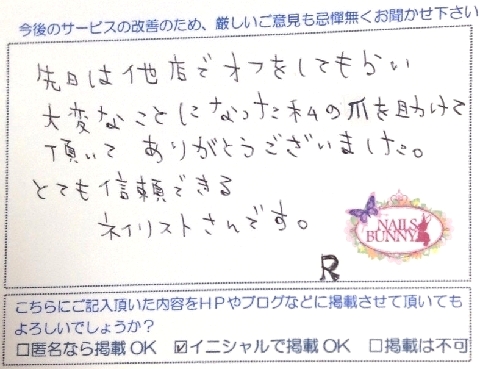 今後のサービスの改善のため、厳しいご意見も忌憚無くお聞かせ下さい
先日は他店でオフをしてもらい
大変なことになった私の爪を助けて
頂いて ありがとうございました。
とても信頼できる
ネイリストさんです。
NAILS
BUNNY
R
こちらにご記入頂いた内容をHPやブログなどに掲載させて頂いても
よろしいでしょうか?
□匿名なら掲載OK ☑イニシャルで掲載OK □掲載は不可